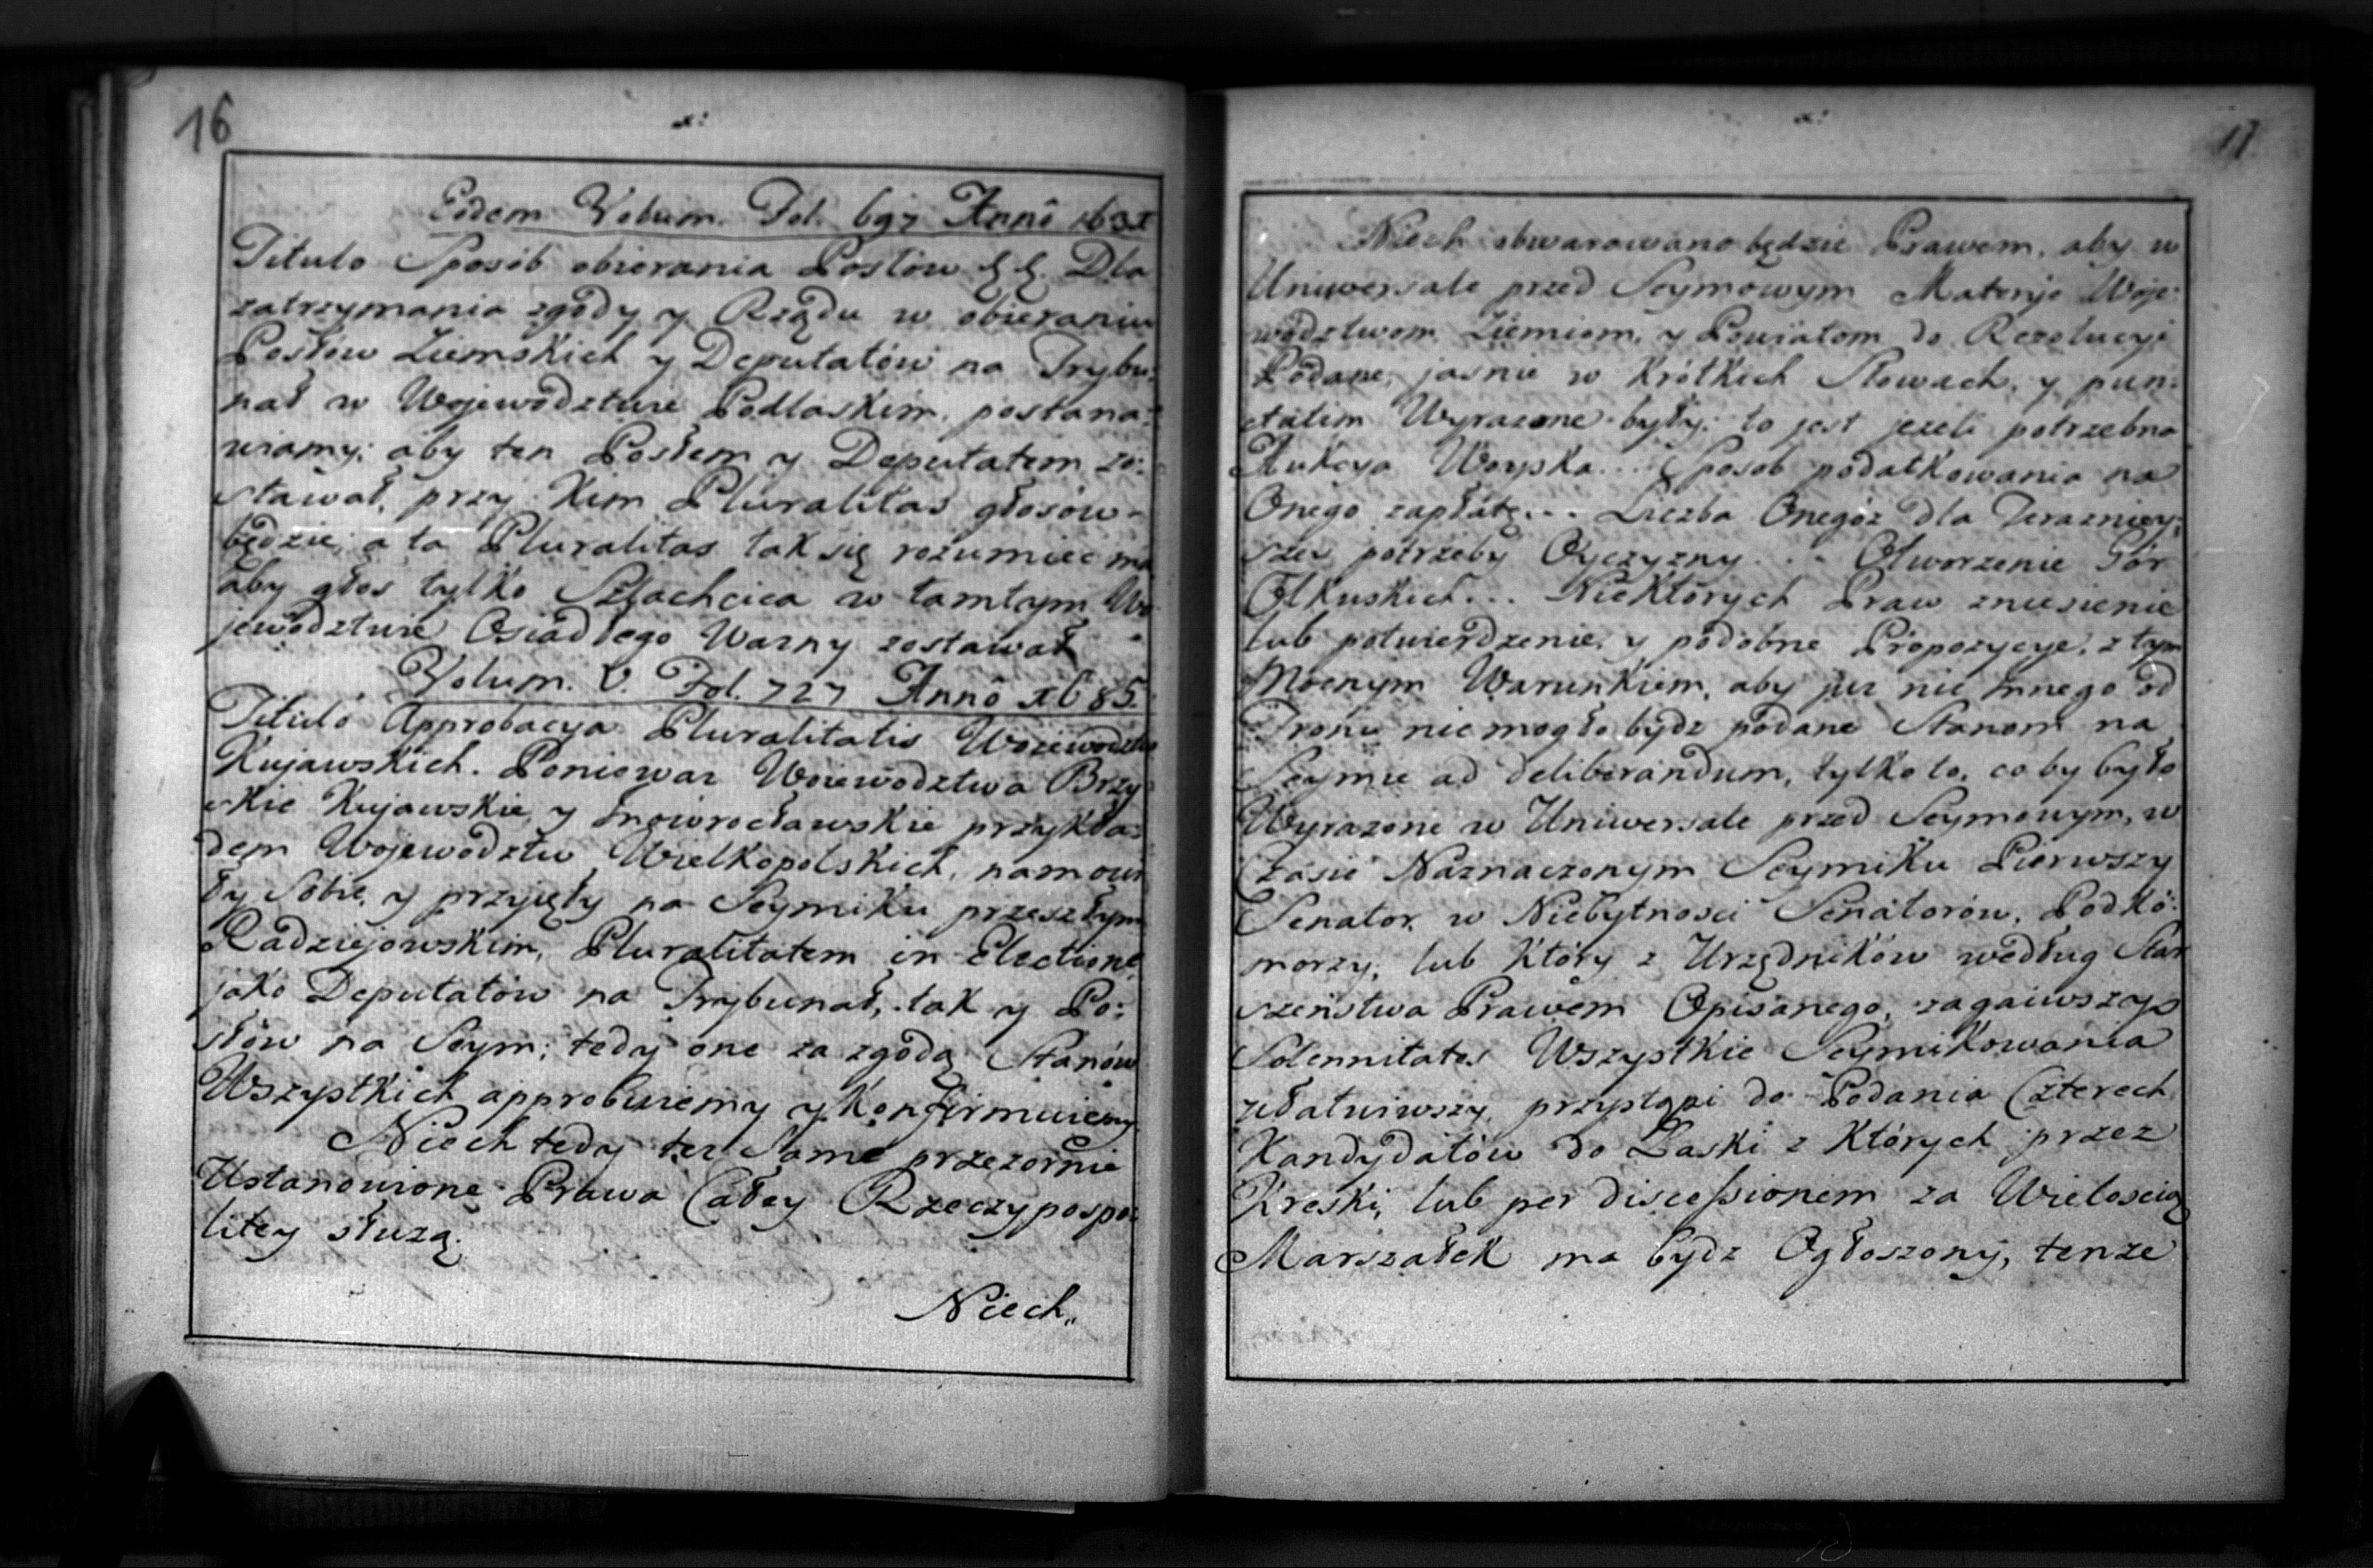 16
x:
Eodem Volum. Fol. 697 Annô 1631
Titulo Sposób obierania Posłow §§. Dla
zatrzymania zgody y Rządu w obieraniu
Posłów Ziemskich y Deputatów na Trybu:
nał w Wojewodztwie Podlaskim, postana:
wiamy: aby ten Posłem y Deputatem zo:
stawał, przy kim Pluralitas głosów
będzie, a ta Pluralitas tak się rozumiec ma
aby głos tylko Szlachcica w tamtym Wo
jewodztwie Osiadłego Wazny zostawał
Volum. V. Fol. 727 Annô 1685.
Titulô Approbacya Pluralitatis Woiewodztw
Kujawskich. Poniewaz Woiewodztwa Brzy
skie Kujawskie, y Inowrocławskie przykła:
dem Wojewodztw Wielkopolskich, namowi
ły Sobie, y przyięły na Seymiku przeszłym
Radziejowskim, Pluralitatem in Electione
jako Deputatów na Trybunał, tak y Po:
słów na Seym; tedy one za zgodą Stanów
Wszystkich approbuiemy y Konfirmuiemy
Niech tedy tez Same przezornie
Ustanowione Prawa Całey Rzeczypospo:
litey słuzą.
Niech„
17
x:
Niech obwarowano będzie Prawem, aby w
Uniwersale przed Seymowym Materyje Woje:
wodztwom Ziemiom, y Powiatom do Rezolucyi
Podane, jasnie w Krótkich Słowach, y pun:
ctatim Wyrazone były: to jest jezeli potrzebna
Aukcya Woyska... Sposob podatkowania na
Onego zapłatę... Liczba Onegóz dla Terazniey:
szey potrzeby Oyczyzny... Otworzenie Gór
Olkuskich... Niektórych Praw zniesienie
lub potwierdzenie, y podobne Propozycye, z tym
Mocnym Warunkiem, aby juz nic innego od
Tronu nie mogło bydz podane Stanom na
Seymie ad deliberandum, tylko to, co by było
Wyrazone w Uniwersale przed Seymowym, w
Czasie Naznaczonym Seymiku Pierwszy
Senator, w Niebytnosci Senatorów, Podko:
morzy, lub Który z Urzędników według Star
szeństwa Prawem Opisanego, zagaiwszy
Solennitates Wszystkie Seymikowania
ułatwiwszy, przystąpi do Podania Czterech
Kandydatów do Laski z Których przez
Kreski, lub per discessionem za Wielością
Marszałek ma bydz Ogłoszony, tenze